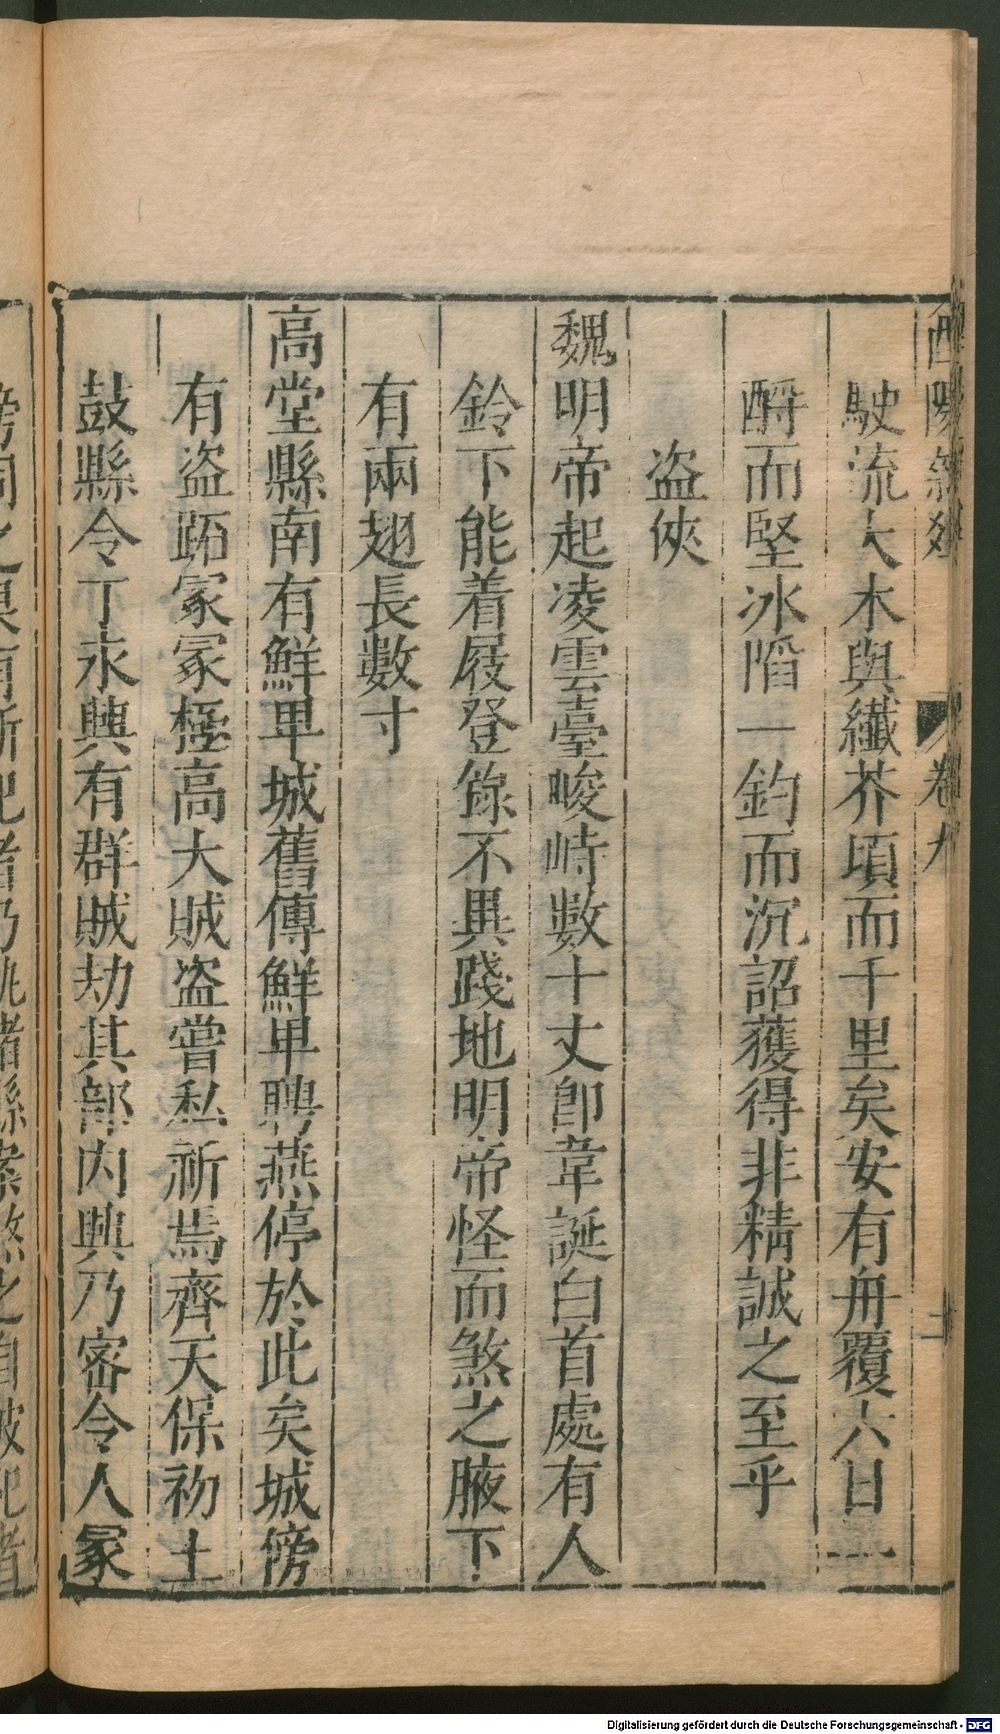 酉陽雜俎
卷九
駛流大木與纖芥頃而千里矣安有舟覆六日一
酹而堅冰陷一釣而沉詔獲得非精誠之至乎
盗俠
魏明帝起凌雲臺峻峙數十丈即韋誕白首處有人
鈴下能着屐登緣不異踐地明帝怪而煞之腋下
有兩翅長數寸
高堂縣南有鮮卑城舊傳鮮卑聘燕停於此矣城傍
有盗跖冢冢極高大賊盗嘗私祈焉齊天保初土
鼓縣令丁永興有群賊劫其部内興乃密令人冢
傍伺之果有祈祀者乃執諸縣案煞之自後祀者
Digitalisierung gefördert durch die Deutsche Forschungsgemeinschaft - DFG